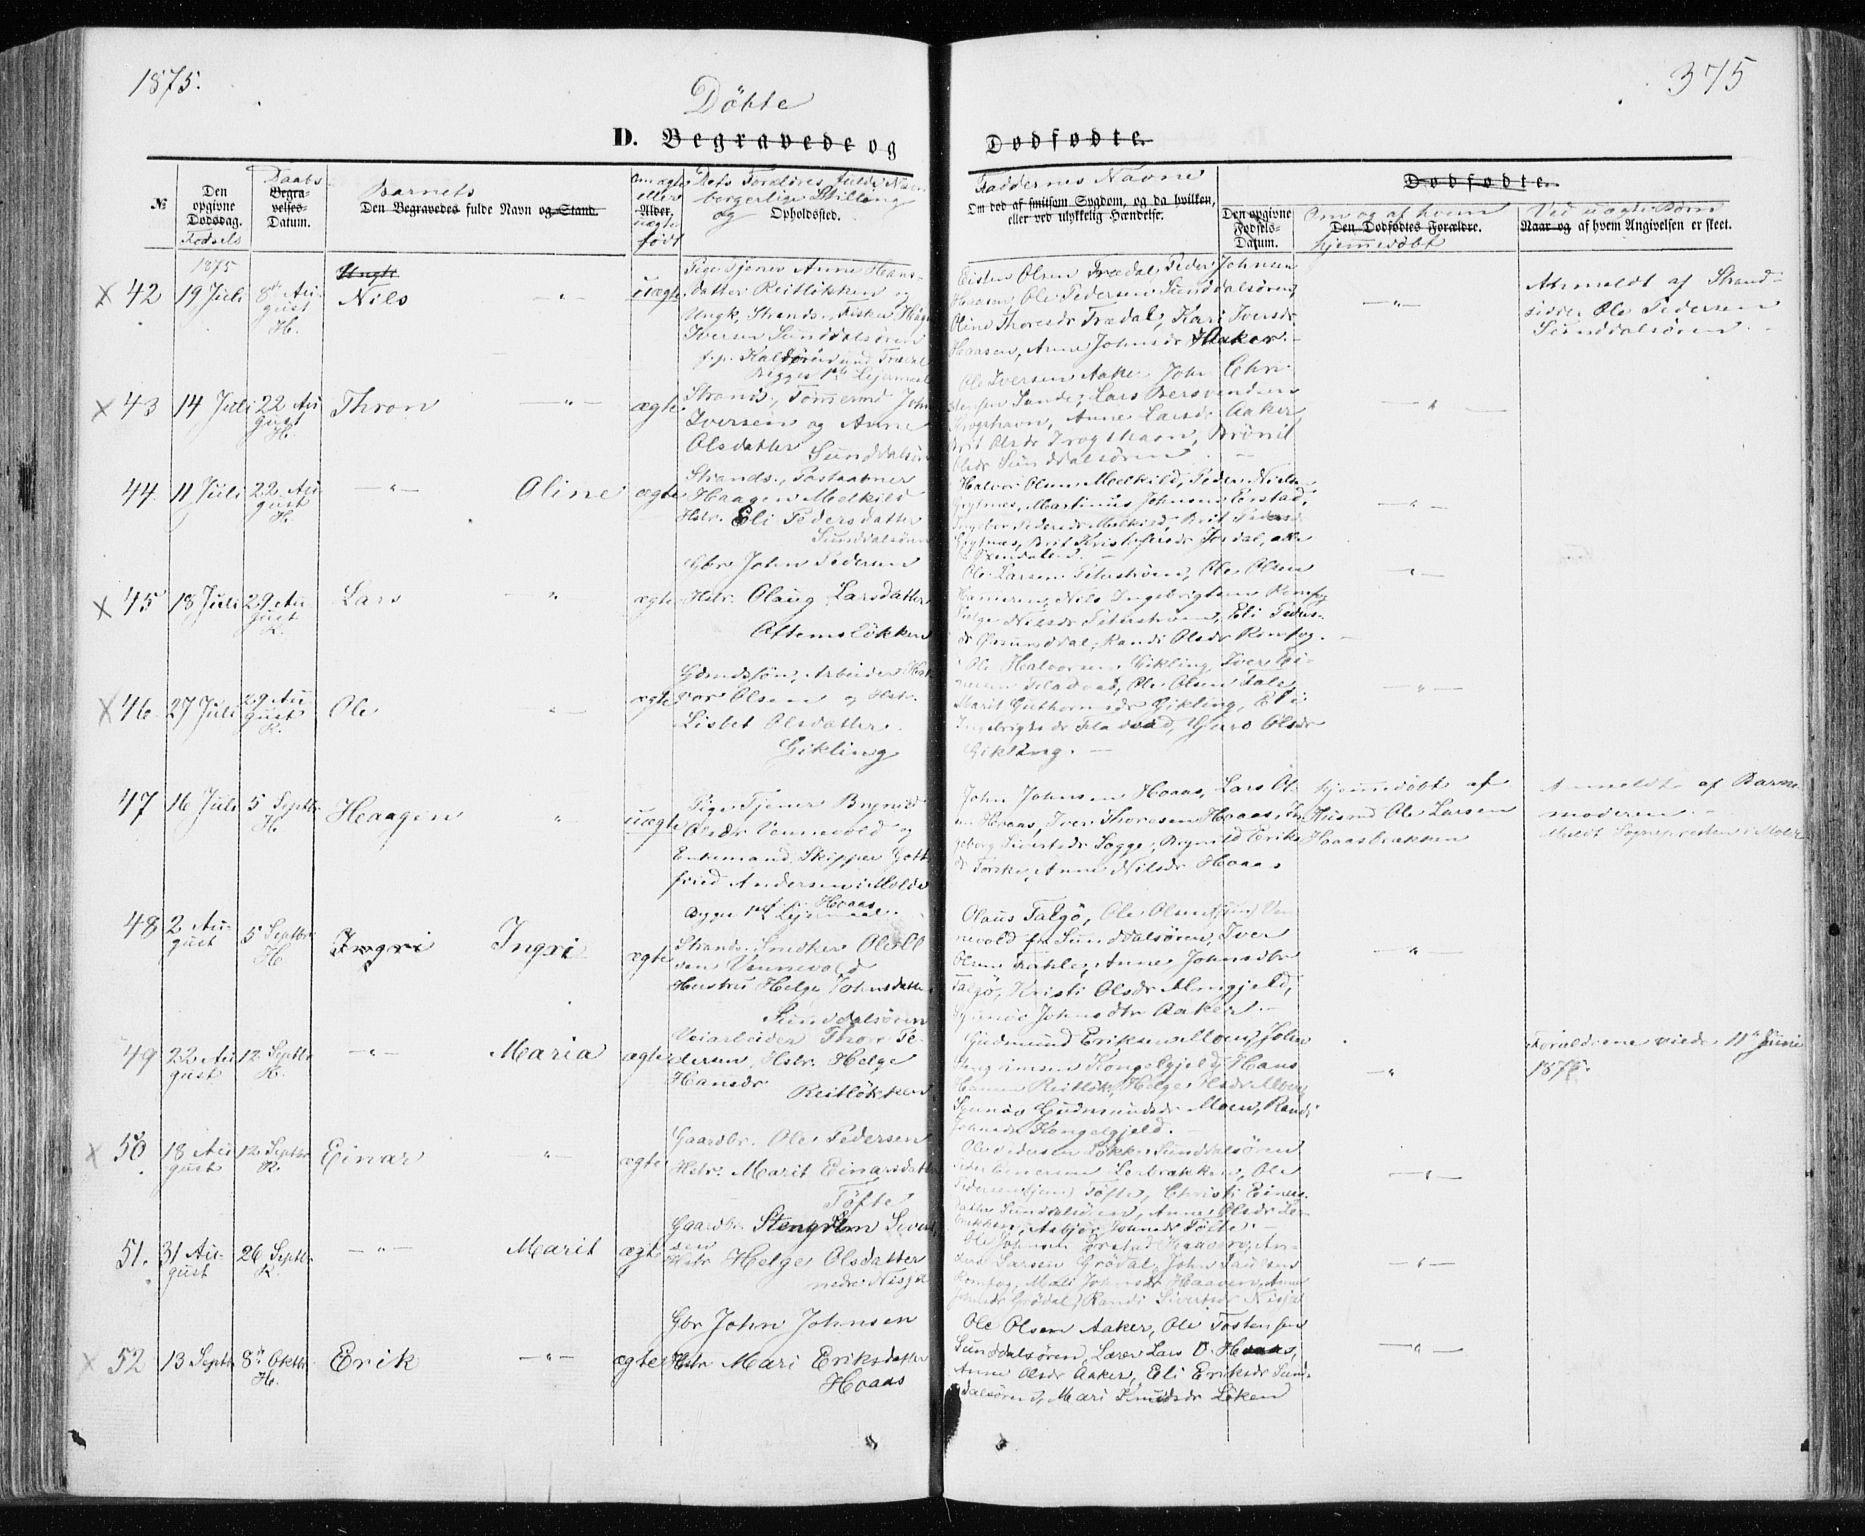 1875.
375
Döbte
D. Begravede og
Dødfødte.
№
Den opgivne Dødsdag.
Fødsels
Daabs
Begravelses-Datum.
Barnets
Den Begravedes fulde Navn og Stand.
Om ægte eller
Alder.
uægte født
Dets Forældres fulde Navn
borgerlige Stilling
og Opholdssted.
Faddernes Navne
Om død af smitsom Sygdom, og da hvilken,
eller ved ulykkelig Hændelse.
Den opgivne Fødsels-Datum.
Dødfødte.
Om og af hvem
Den Dødfødtes Forældre.
hjemmedöbt
Ved uægte Börn
Naar og af hvem Angivelsen er skeet.
1875
42
19 Juli
8de August
H.
Ungk
Nils
uægte
Pige Tjener Anne Hans-
datter Reitlökken og
Ungk. Strands. Fisker
Iversen Sunddalsören
Begges 1ste Leiermaal
Eisten Olsen Trædal, Peder Johnsen
Hoaasen, Ole Pedersen Sunddalsören,
Oline Thoresdr Trædal, Kari Iversdr
Hoaasen, Anne Johnsdr Haaker.
Anmeldt af Strand-
sidder Ole Pedersen
Sunddalsören
43
14 Juli
22 August
H.
Thron
ægte
Strands., Tömmermd John
Iversen og Anne
Olsdatter
Sunddalsören
Ole Iversen Aaker, John Chri-
stensen Sande, Lars Bersvendsen
Trogshavn, Anne Larsdr Aaker
Brit Olsdr Trogshavn, Brönil
Olsdr Sunddalsören
44.
11 Juli
22 August
H.
Oline
ægte
Strands., Postaabner
Haagen Melkild
Hstr. Eli Pedersdatter
Sunddalsören
Halvor Olsen Melkild, Peder Nielsen
Grytnes, Martinus Johnsen Örstad,
Ingebor Pedersdr Melkild, Brit Pedersdr
Grytnæs, Brit Kristofersdr Jordal, alle
fr. Öxendalen.
45
18 Juli
29 August
K.
Lars
ægte
Gbr John Pedersen
Hstr. Olaug Larsdatter
Oftemslökken
Ole Larsen Peterström, Ole Olsen
Hammeren, Nils Ingebrigtsen Romfog
Helge Nilsdr Peterström, Eli Peders-
dr Grunddal, Randi Olsdr Romfog.
46
27 Juli
29 August
K.
Ole
ægte
Gdmdssön, Arbeider Hal-
vor Olsen og Hstr.
Lisbet Olsdatter
Gikling
Ole Halvorsen Gikling, Iver Ei-
narsen Fladvad, Ole Olsen Fale,
Marit Guthormsdr Gikling, Eli
Ingebrigtsdr Fladvad, Guro Olsdr
Gikling.
47
16 Juli
5 Septbr
H.
Haagen
uægte
Pige Tjener Brynild
Olsdr Vennevold og
Enkemand Skipper Gott-
fried Andersen i Molde
f. p. Hoaas
Begges 1ste Leiermaal
John Johnsen Hoaas, Lars Ol-
sen Hoaas, Iver Thoresen Hoaas, In-
geborg Sivertsdr Sogge, Brynild Eriks-
dr Torske, Anne Nilsdr Hoaas
hjemmedöbt af
Husmd Ole Larsen
Hoaasbakken
Anmeldt af Barne-
moderen
Meldt Sognepresten i Molde
48
2 August
5 Septbr
H.
Ingri
Ingri
ægte
Strands., Snedker Ole Ol-
sen Vennevold
Hustru Helge Johnsdatter
Sunddalsören
Olaus Talgö, Ole Olsen (jun) Ven-
nevold fr Sunddalsören, Iver
Olsen Fahle, Anne Johnsdtr
Talgö, Kristi Olsdr Almgjeld,
Synnöv Johnsdtr Aaker
49
22 August
12 Septbr
K.
Maria
ægte
Veiarbeider Thor Pe-
dersen, Hstr. Helge
Hansdr
Reitlökken
Gudmund Eriksen Moen, John
Hansen Reitlök, Helge Olsdr Moen
Synnöv Gudmundsdr Moen, Randi
Johnsdr Kongelgjeld.
Forældrene viede 11te Juni
1875.
50
18 August
12 Septbr
K.
Einar
ægte
Gaardbr. Ole Pedersen
Hstr. Marit Einarsdatter
Töfte
Ole Pedersen Lökke, Sunddalsören
Peder Einersen Lerbakken, Ole
Pedersen (jun) Töfte, Christi Einers-
datter Sunddalsören, Anne Olsdr Ler-
bakken, Asbjör Johnsdr Töfte.
51.
31 August
26 Septbr
K.
Marit
ægte
Gaardbr. Stengrim Sivert-
sen
Hstr Helge Olsdatter
nedre Nisja
Ole Johnsen Örstad Haaven, An-
ders Larsen Grödal, John Paulsen
Romfog, Mali Johnsdr Haaven, Anne
Johnsdr Grödal, Randi Sivertsdr Nisja
52
13 Septbr
8de Oktbr.
H.
Erik
ægte
Gbr John Johnsen
Hstr Mari Eriksdatter
Hoaas
Ole Olsen Aaker, Ole Tostensen
Sunddalsören, Lærer Lars O. Hoaas,
Anne Olsdr Aaker, Eli Eriksdr Sun-
dalsören, Mari Knudsdr Löken